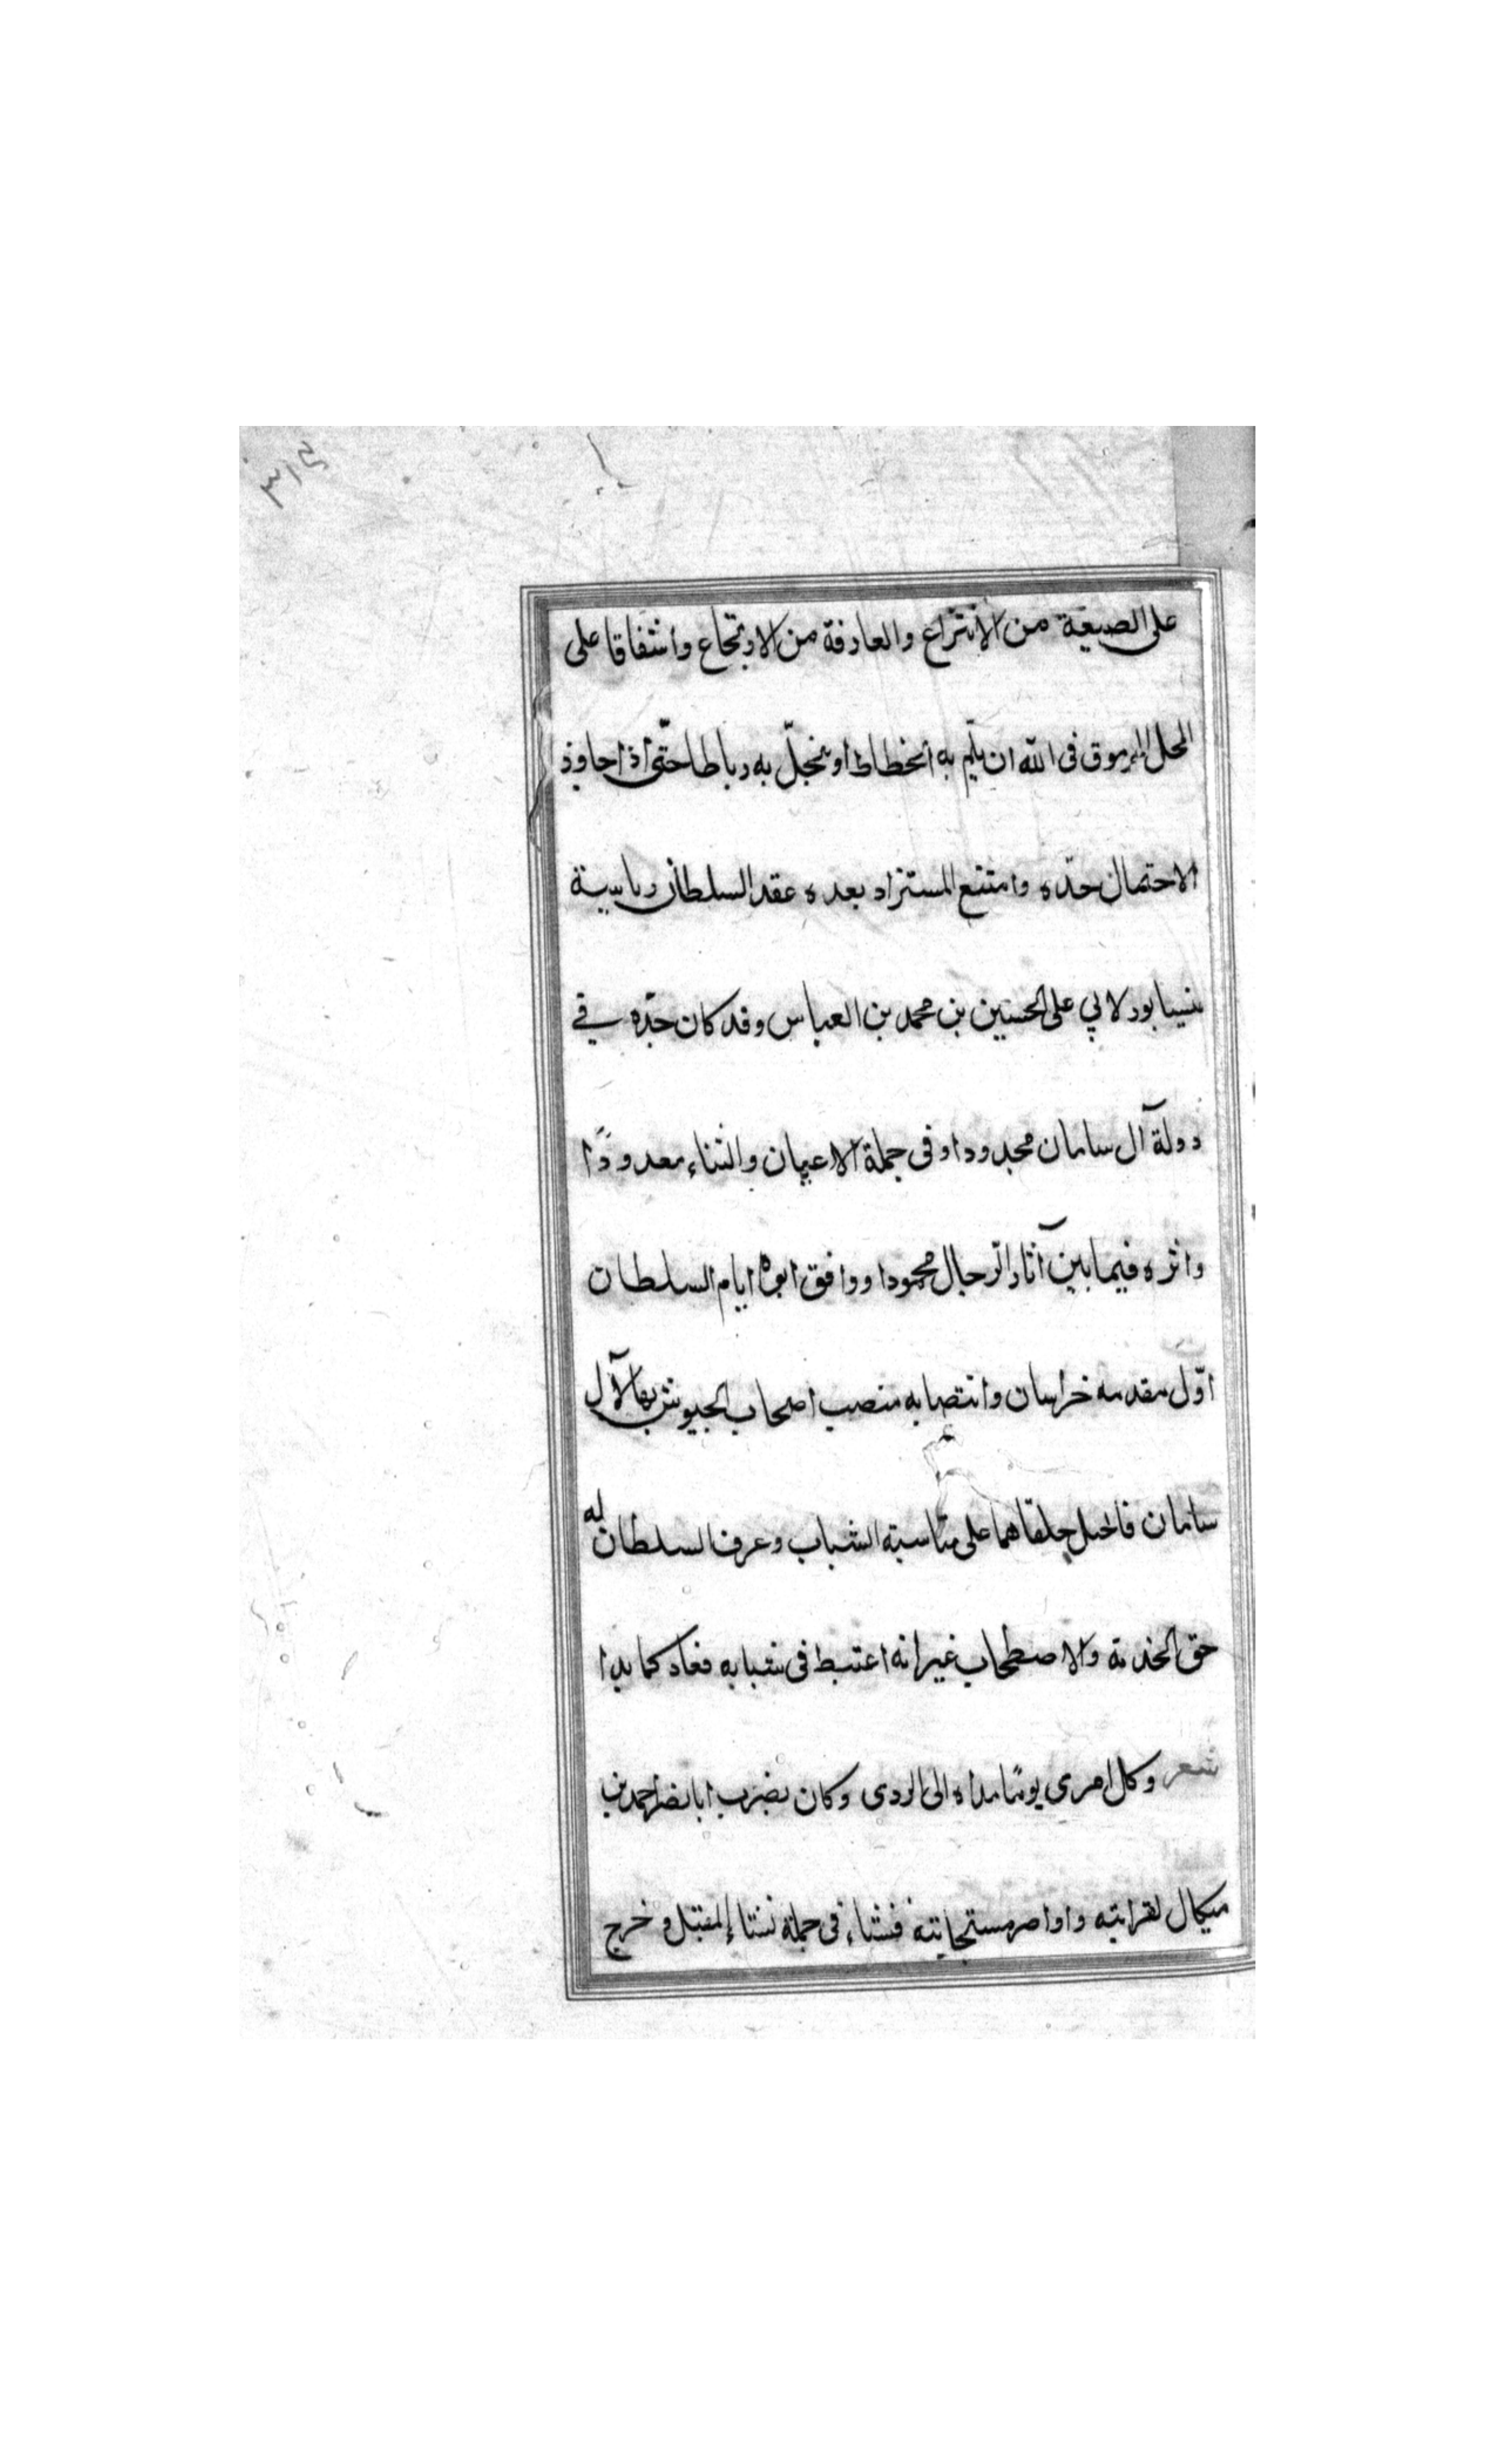 ٣١٣
على الصيعة من الانتزاع والعارفة من الارتجاع واشفاقا على
المحل المرموق فى الله ان يلم به انخطاط او ينحل به رباطا حتى اذا جاوز
الاحتمال حده وامتنع المستزاد بعده عقد السلطان رياسة
بنيسابور لابي على الحسين بن محمد بن العباس وقد كان جده في
دولة آل سامان مجدودا وفى جملة الاعيان والثناء معدودًا
واثره فيما بين آثار الرجال محمودا ووافق ابوه ايام السلطان
اوّل مقدمه خراسان وانتصابه منصب اصحاب الجيوش بها لآل
سامان على مناسبة الشباب وعرف السلطان له
حق الخدمة والاصطحاب غير انه اعتبط فى شبابه فعاد كما بدا
شعر وكل امرى يومًا مداه الى الردى وكان بضرب ابا نصر احمد بن
ميكال لقرابته واواصر فنشاء فى جملة نشاء المقبل وخرج